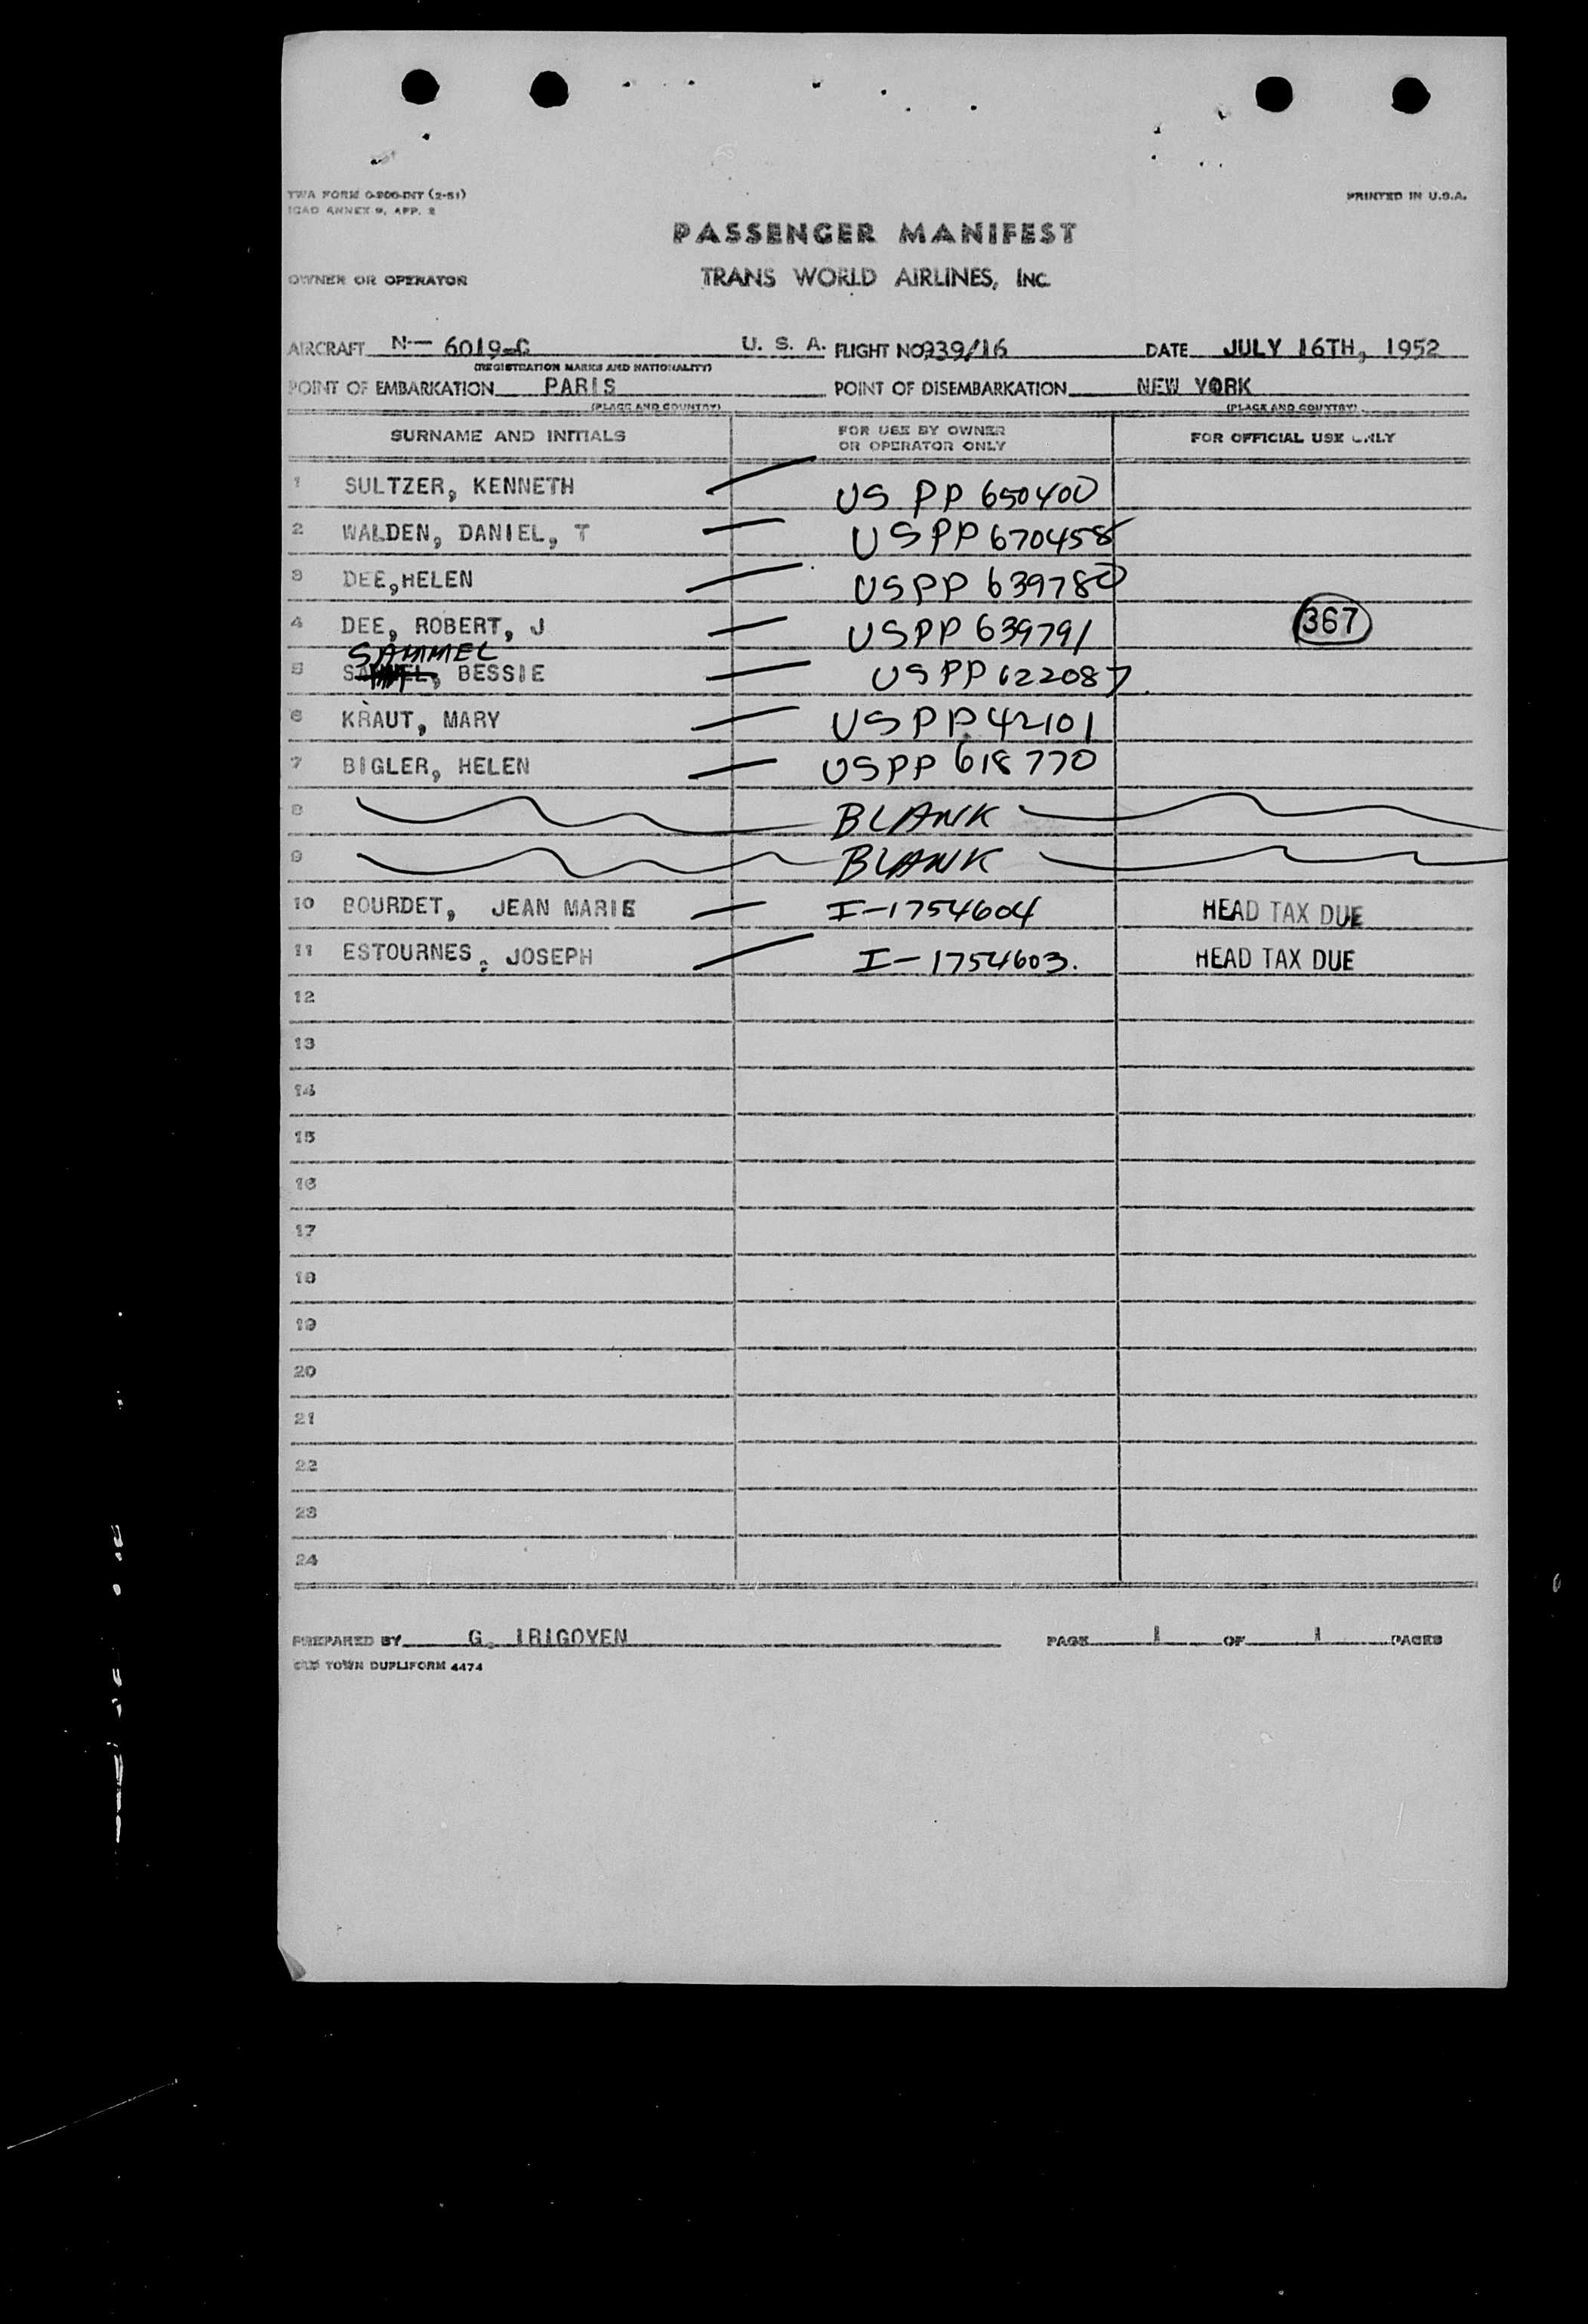 TWA FORM O-800-INT (2-51)
ICAO ANNEX 9, APP. 2
PRINTED IN U.S.A.
PASSENGER MANIFEST
OWNER OR OPERATOR TRANS WORLD AIRLINES, INC
AIRCRAFT N— 6019-C U. S. A. FLIGHT NO 939/16 DATE JULY 16TH, 1952
(REGISTRATION MARKS AND NATIONALITY)
POINT OF EMBARKATION PARIS POINT OF DISEMBARKATION NEW YORK
(PLACE AND COUNTRY) (PLACE AND COUNTRY)
SURNAME AND INITIALS FOR USE BY OWNER OR OPERATOR ONLY FOR OFFICIAL USE ONLY
1 SULTZER, KENNETH — US PP 650400
2 WALDEN, DANIEL, T — USPP 670458
3 DEE,HELEN — USPP 639780
4 DEE, ROBERT, J — USPP 639791 367
SAMMEL
5 , BESSIE — USPP 622087
6 KRAUT, MARY — USPP 42101
7 BIGLER, HELEN — USPP 618770
8 BLANK
9 BLANK
10 BOURDET, JEAN MARIE — I-1754604 HEAD TAX DUE
11 ESTOURNES, JOSEPH — I-1754603. HEAD TAX DUE
12
13
14
15
16
17
18
19
20
21
22
23
24
PREPARED BY G. IRIGOYEN PAGE 1 OF 1 PAGES
OLD TOWN DUPLIFORM 4474